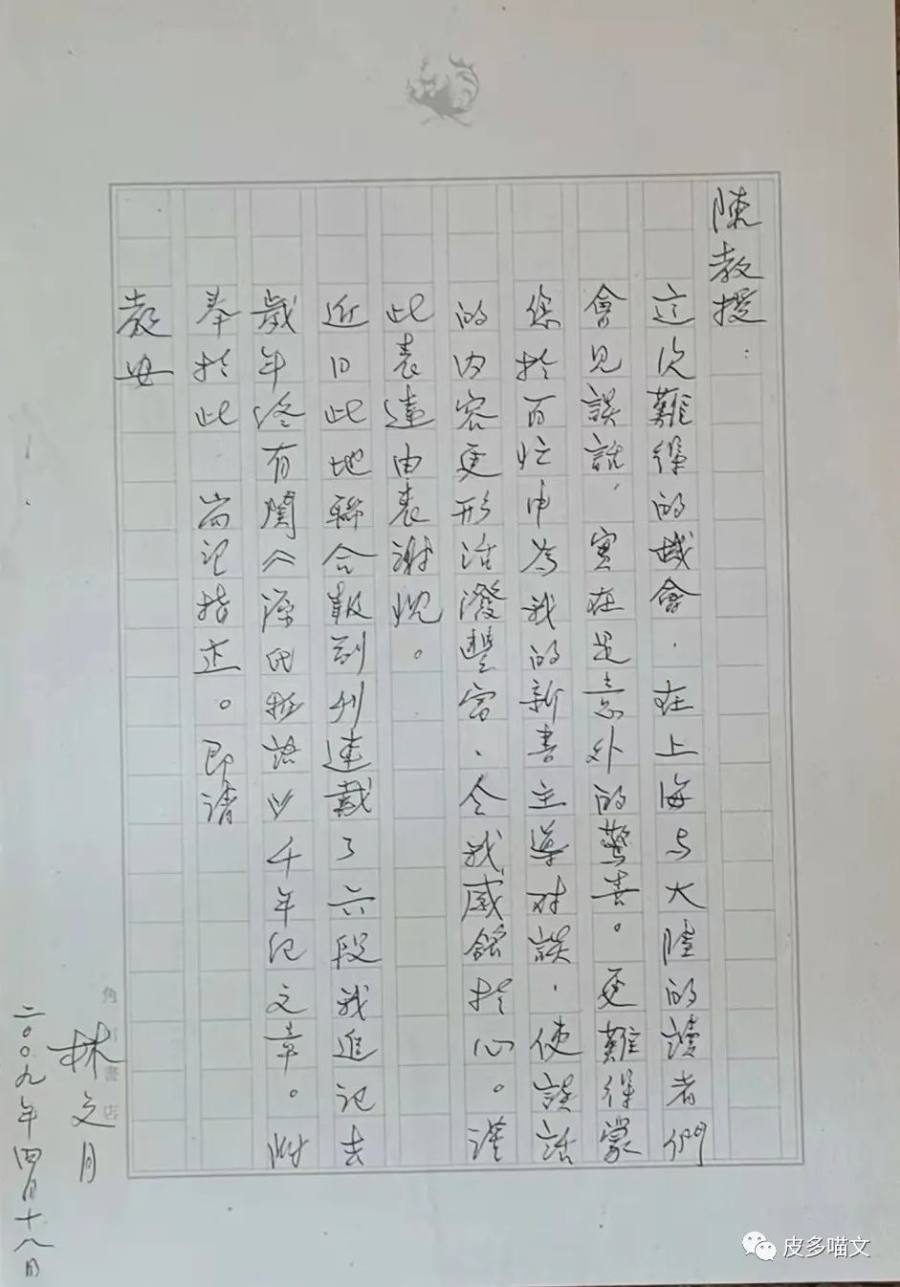 陳教授：
這次難得的機會，在上海与大陸的讀者們
會見談話，實在是意外的驚喜。更難得蒙
您於百忙中為我的新書主導对談，使談話
的內容更形活潑豐富，令我感銘於心。謹
此表達由衷謝忱。
近日此地聯合報副刊連載了六段我追记去
歲年終有關《源氏物語》千年纪文章。附
奉於此 尚祈指正。即請
教安
林文月
二〇〇九年四月十八日
角川書店
皮多喵文